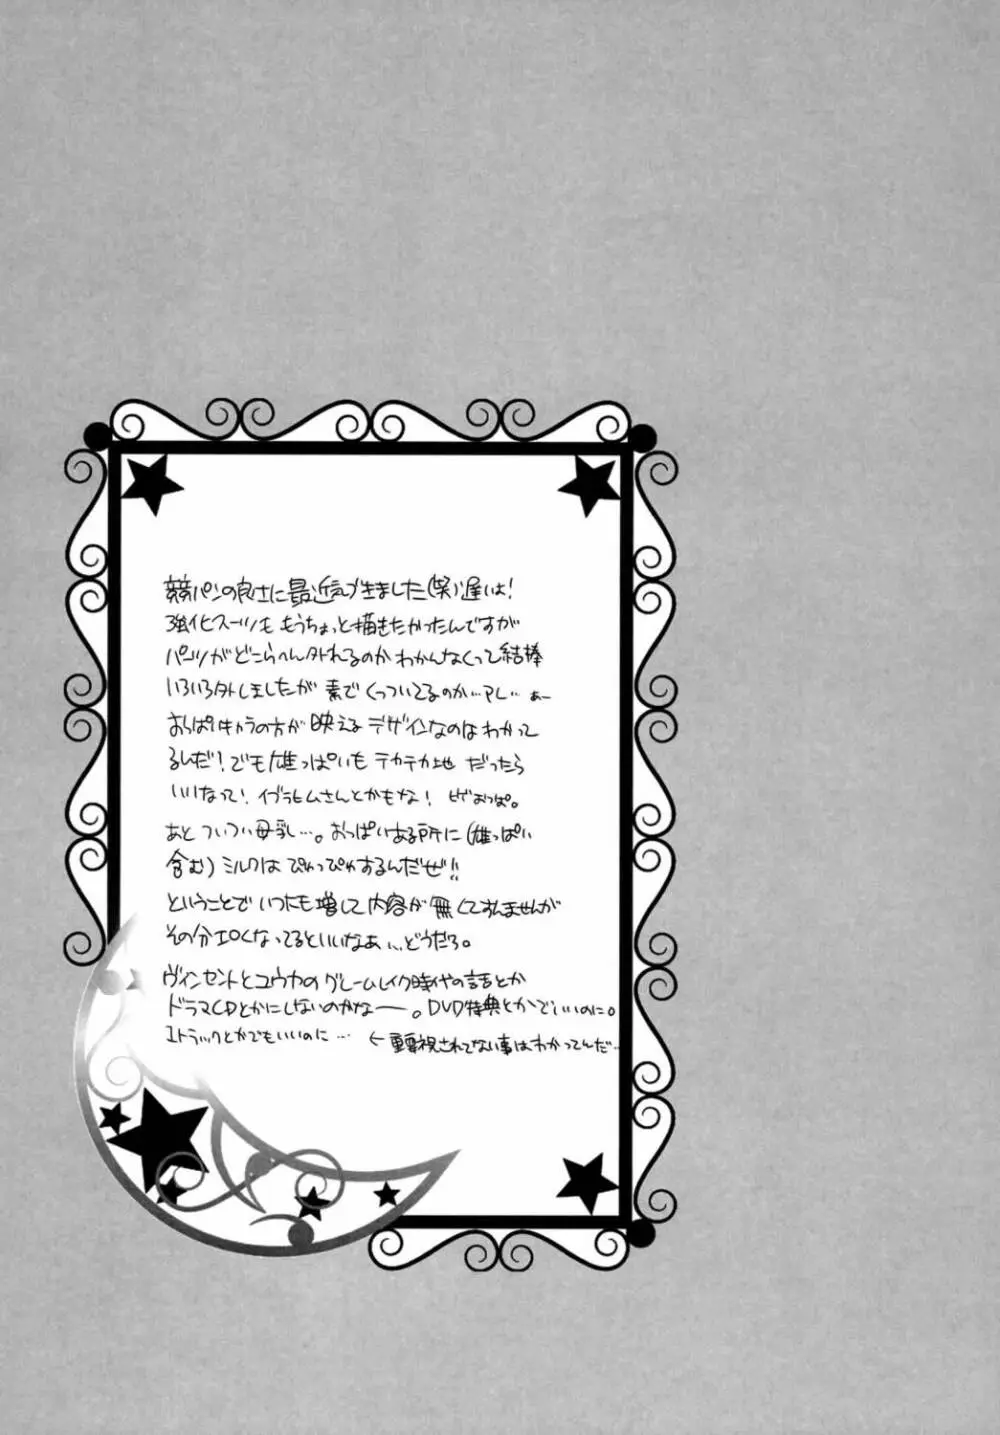 競パンの良さに最近気づきました(笑)遅いよ!
強化スーツも もうちょっと描きたかったんですが
パンツがどこらへん外れるのか わかんなくって結構
いろいろ外しましたが 素でくっついてるのか…アレ… ぁー
おっぱいキャラの方が 映える デザインなのはわかって
るんだ!でも雄っぱいも テカテカ地 だったら
いいなって! イブラヒムさんとかもな! ヒゲおっぱ。
あと ついつい 母乳…。おっぱいある所に(雄っぱい
含む)ミルクは ぴゅっぴゅするんだぜ!!
ということで いつにも増して 内容が 無くてすんませんが
その分エロくなってるといいなぁ…どうだろ。
ヴィンセントとユウカの グレームレイク時代の話とか
ドラマCDとかにしないのかなー。DVD特典とかでいいのに。
1トラックとかでもいいのに… ←重要視されてない事はわかってんだ…